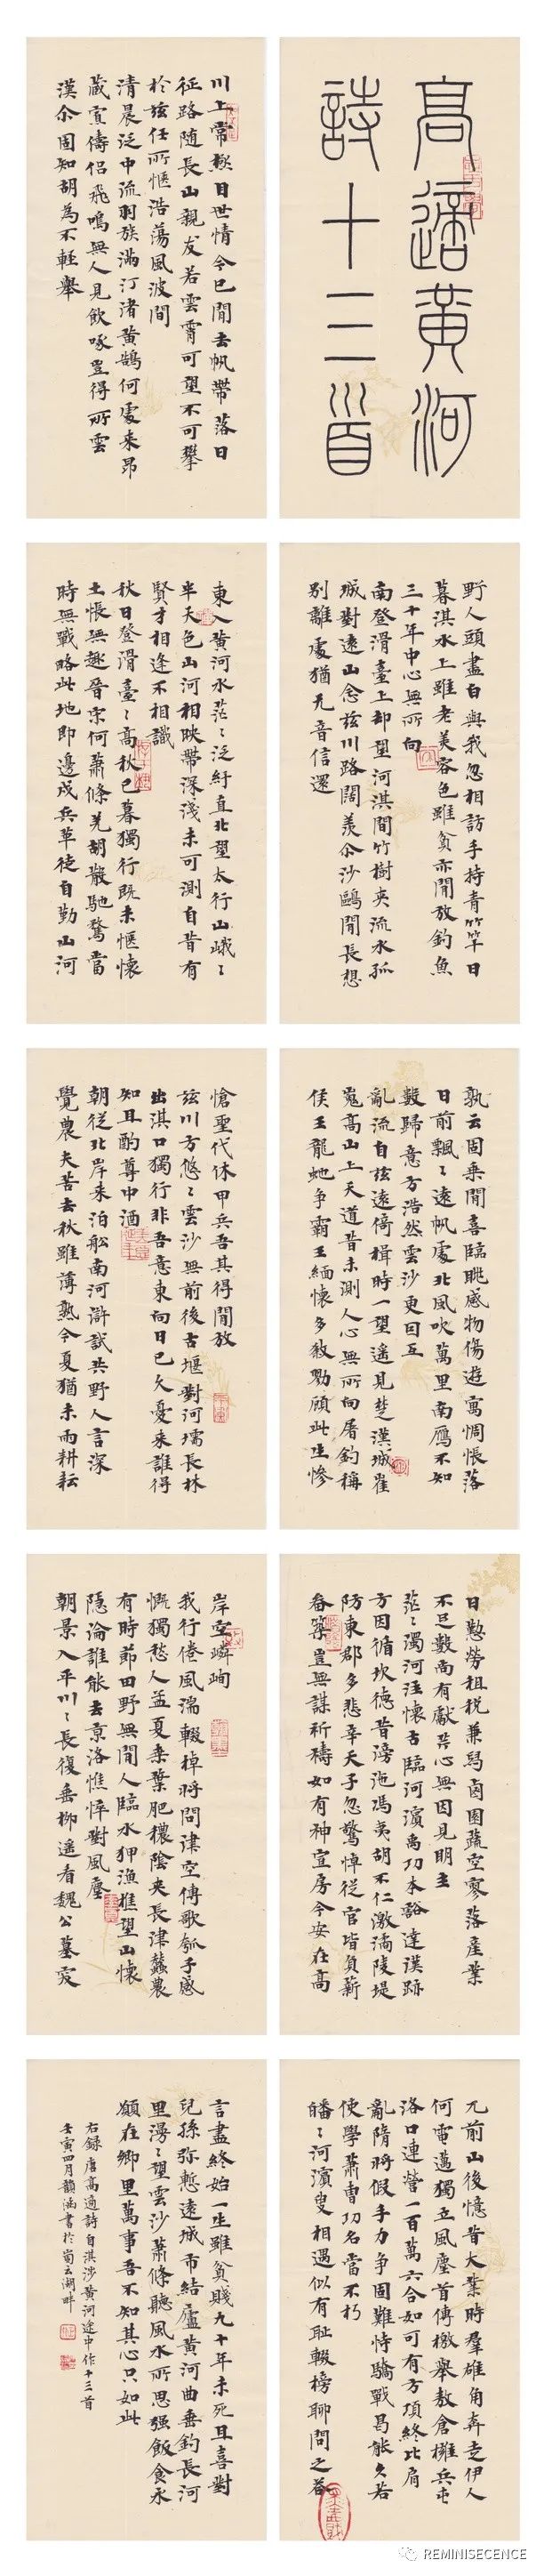 高適黃河
詩十三首
川上常極目世情今已閒去帆帶落日
征路隨長山親友若雲霄可望不可攀
於茲任所愜浩蕩風波間
清晨泛中流羽族滿汀渚黃鵠何處來昂
藏寡儔侶飛鳴無人見飲啄豈得所雲
漢尒固知胡為不輕舉
野人頭盡白與我忽相訪手持青竹竿日
暮淇水上雖老美容色雖貧亦閒放釣魚
三十年中心無所向
南登滑臺上却望河淇間竹樹夾流水孤
城對遠山念茲川路闊羨尒沙鷗閒長想
別離處猶无音信還
東入黃河水茫〻泛紆直北望太行山峨〻
半天色山河相映帶深淺未可測自昔有
賢才相逢不相識
秋日登滑臺〻高秋已暮獨行既未愜懷
土悵無趣晉宋何蕭條羌胡散馳騖當
時無戰略此地即邊戍兵革徒自勤山河
孰云固乘閒喜臨眺感物傷遊寓惆悵落
日前飄〻遠帆處北風吹萬里南雁不知
數歸意方浩然雲沙更回互
亂流自茲遠倚楫時一望遥見楚漢城崔
嵬高山上天道昔未測人心無所向屠釣稱
侯王龍虵争霸王緬懷多殺戮顧此生慘
愴聖代休甲兵吾其得閒放
茲川方悠〻雲沙無前後古堰對河壖長林
出淇口獨行非吾意東向日已久憂来誰得
知且酌尊中酒
朝從北岸来泊船南河滸試共野人言深
覺農夫苦去秋雖薄熟今夏猶未雨耕耘
日勤勞租税兼舄鹵園蔬空寥落産業
不足數尚有獻芹心無因見明主
茫〻濁河注懷古臨河濱禹功本豁達漢跡
方因循坎德昔滂沲馮夷胡不仁激潏陵堤
防東郡多悲辛天子忽驚悼從官皆負薪
畚築豈無謀祈禱如有神宣房今安在高
岸空嶙峋
我行倦風湍輟棹將問津空傳歌瓠子感
慨獨愁人孟夏桑葉肥穠陰夾長津蠶農
有時節田野無閒人臨水狎漁樵望山懷
隱淪誰能去京洛憔悴對風塵
朝景入平川〻長復垂柳遥看魏公墓突
兀前山後憶昔大業時羣雄角奔走伊人
何電邁獨立風塵首傳檄舉敖倉擁兵屯
洛口連營一百萬六合如可有方項終比肩
亂隋將假手力争固難恃驕戰曷能久若
使學蕭曹功名當不朽
皤〻河濱叟相遇似有耻輟榜聊問之答
言盡終始一生雖貧賤九十年未死且喜對
兒孫弥慙遠城市結廬黃河曲垂釣長河
里漫〻望雲沙蕭條聽風水所思强飯食永
願在鄉里萬事吾不知其心只如此
右録唐高適詩自淇涉黃河途中作十三首
壬寅四月韻涵書於蜀云湖畔
REMINISECENCE